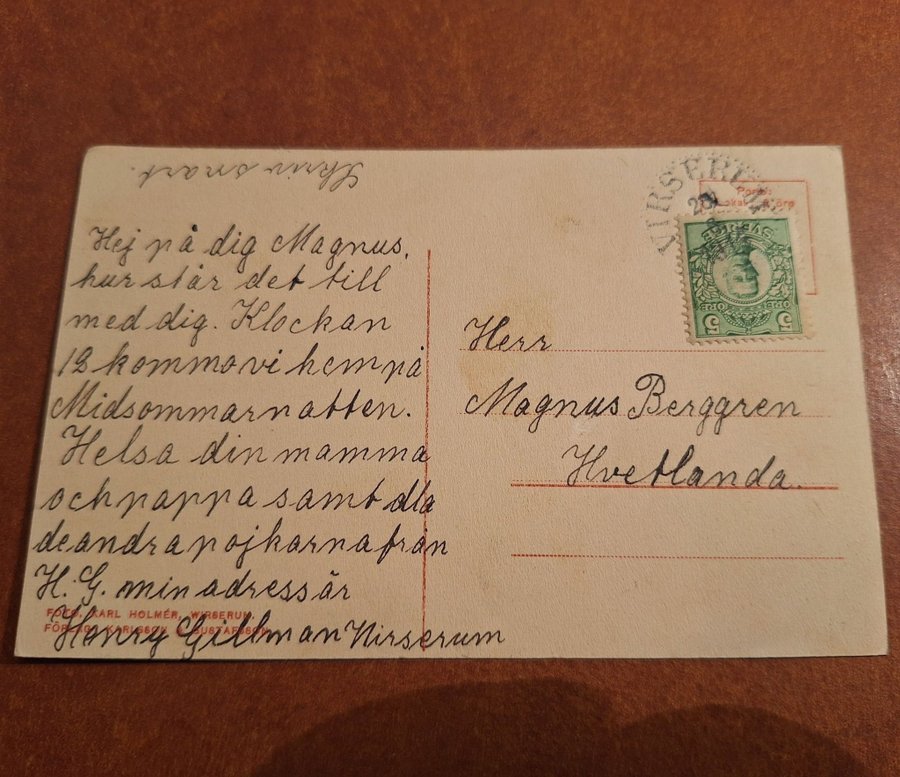 Skriv snart.
Hej på dig Magnus.
hur står det till
med dig. Klockan
12 komma vi hem på
Midsommarnatten.
Helsa din mamma
och pappa samt alla
de andra pojkarna från
H. G. min adress är
Henry Gillman Virserum
FOTO. KARL HOLMÉR, WIRSERUM.
FÖRLAG: KARLSSON & GUSTAFSSON
VIRSERUM
Porto:
Lokalt
öre
SVERIGE
5 5
Herr
Magnus Berggren
Hvetlanda.